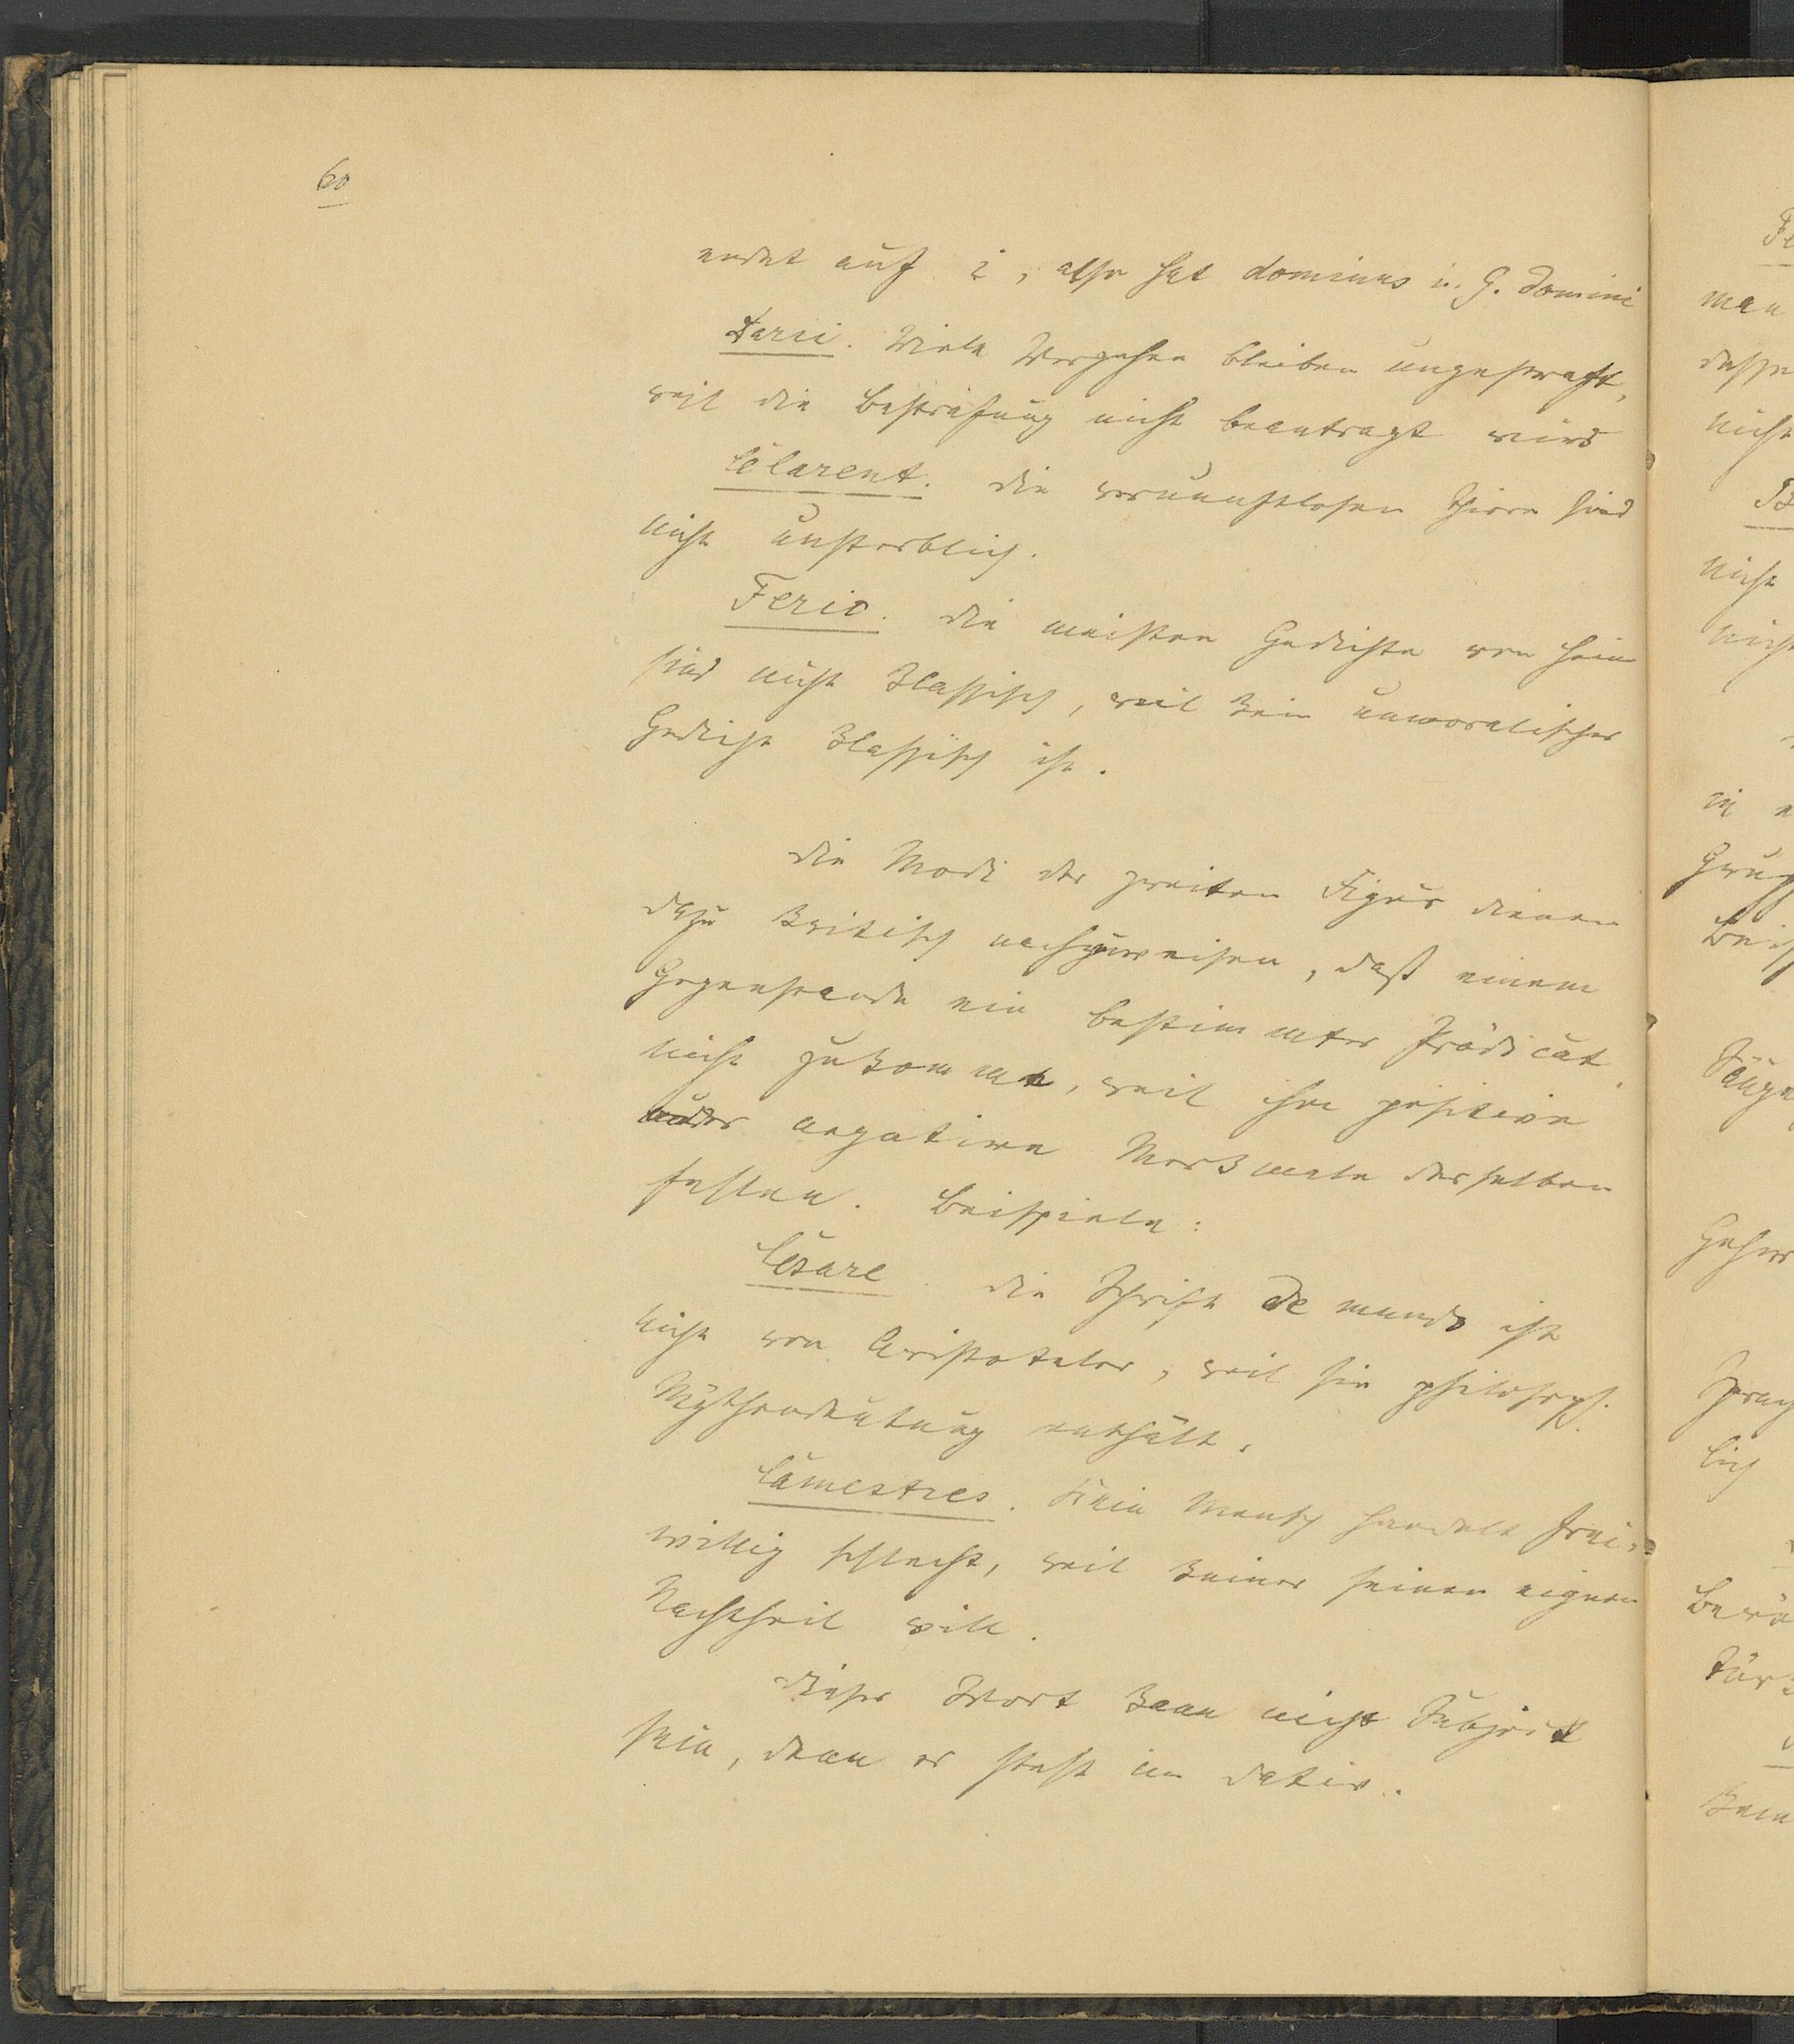 60
endet auf i, also hat dominus i. G. domini
Darii. Viele Vergehen bleiben ungestraft,
weil die Bestrafung nicht beantragt wird
Celarent. Die vernunftlosen Thiere sind
nicht unsterblich.
Ferio. Die meisten Gedichte von Heine
sind nicht klassisch, weil kein unmoralisches
Gedicht klassisch ist.
Die Modi der zweiten Figur dienen
dazu kritisch nachzuweisen, daß einem
Gegenstande ein bestimmtes Prädicat
nicht zukomme, weil ihm positive
oder negative Merkmale desselben
fehlen. Beispiele:
Cesare. Die Schrift de mundo ist
nicht von Aristoteles, weil sie philosoph.
Mythendeutung enthält.
Camestres. Kein Mensch handelt frei-
willig schlecht, weil keiner seinen eignen
Nachtheil will.
Dieses Wort kann nicht Subject
sein, denn es steht im Dativ.